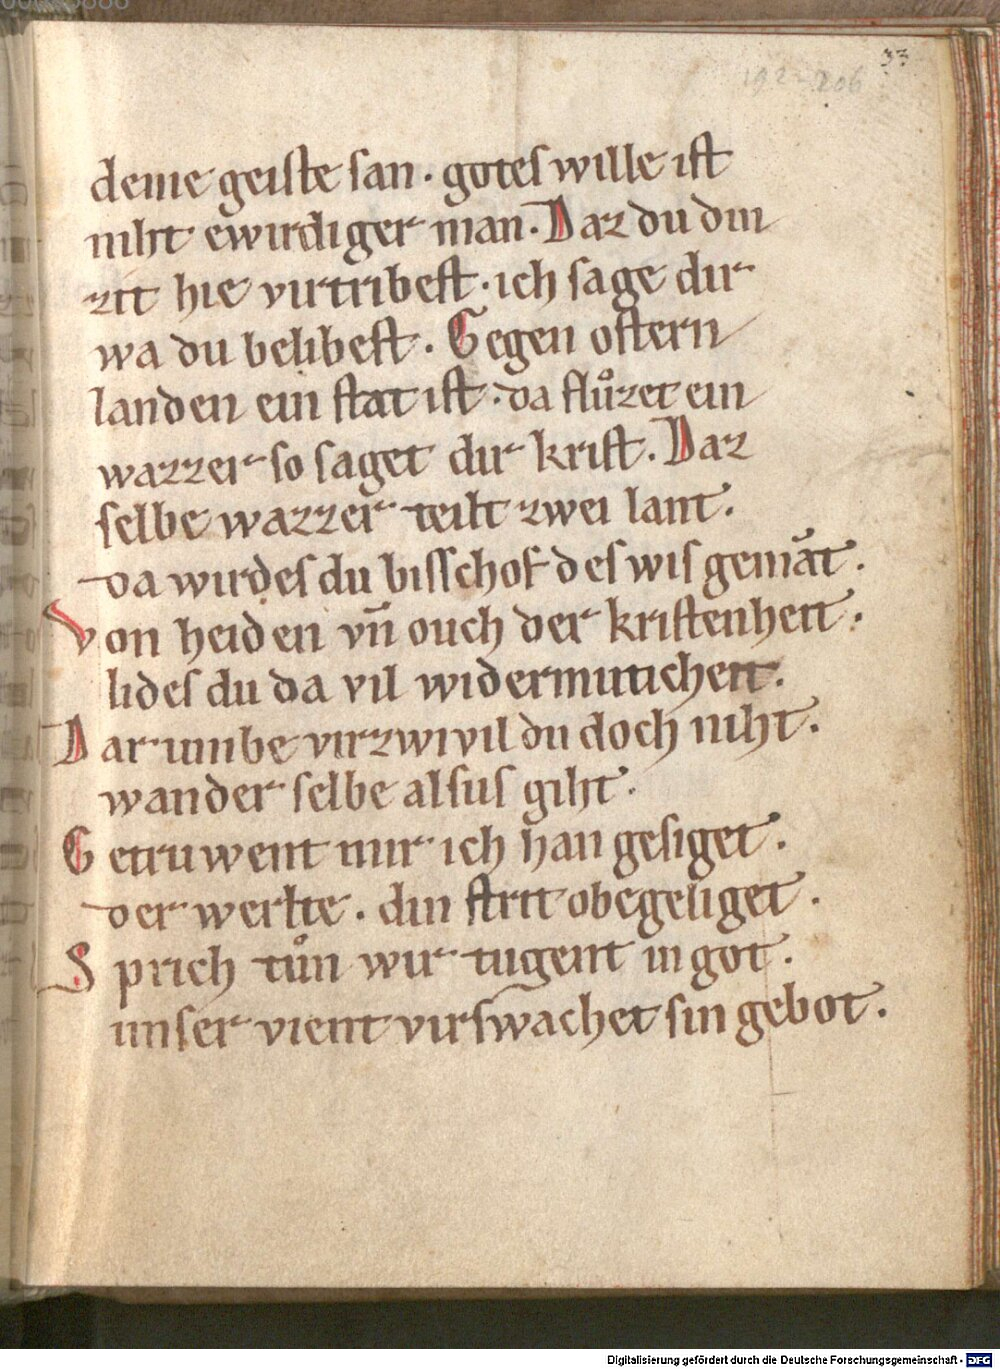 33
192-206
deme geiſte ſan · goteſ wille iſt
niht ewirdiger man. Daz du din
zit hie virtribeſt · ich ſage dir
wa du belibeſt. Gegen oſtern
landen ein ſtat iſt · da fluͦzet ein
wazzer ſo ſaget dir kriſt. Daz
ſelbe wazzer teilt zwei lant.
da wirdeſ du biſſchof deſ wiſ gemāt.
Von heiden vn̄ ouch der kriſtenheit.
lideſ du da vil widermuticheit.
Dar umbe virzwivil du doch niht.
wander ſelbe alſuſ giht.
Getruwent mir ich han geſiget.
der werlte. din ſtrit obegeliget.
Sprich tuͦn wir tugent in got.
unſer vient virſwachet ſin gebot.
Digitalisierung gefördert durch die Deutsche Forschungsgemeinschaft - DFG